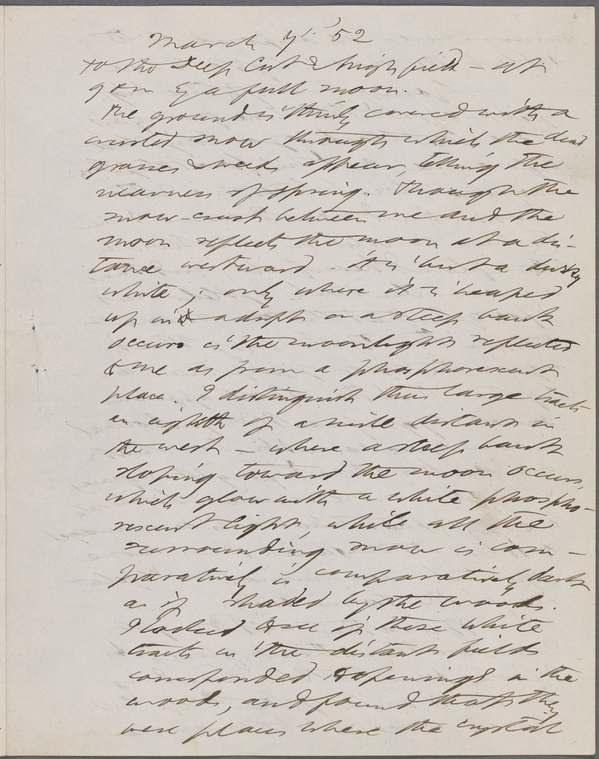 March 7th 52
to the Deep Cut & high field – at
9 Pm by a full moon.
The ground is thinly covered with a
crusted snow through which the dead
grasses & weeds appear, telling the
nearness of spring. Though the
snow-crust between me and the
moon reflects the moon at a dis-
tance westward it is but a dusky
white; only where it is heaped
up into a drift or a steep bank
occurs is the moonlight reflected
to me as from a phosphorescent
place. I distinguish thus large tracts
an eighth of a mile distant in
the west – where a steep bank
sloping toward the moon occurs,
which glow with a white phospho-
rescent light, while all the
surrounding snow is com-
paratively is comparatively dark
as if shaded by the woods.
I looked to see if these white
tracts in the distant fields
corresponded to openings in the
woods, and found that they
were places where the crystal